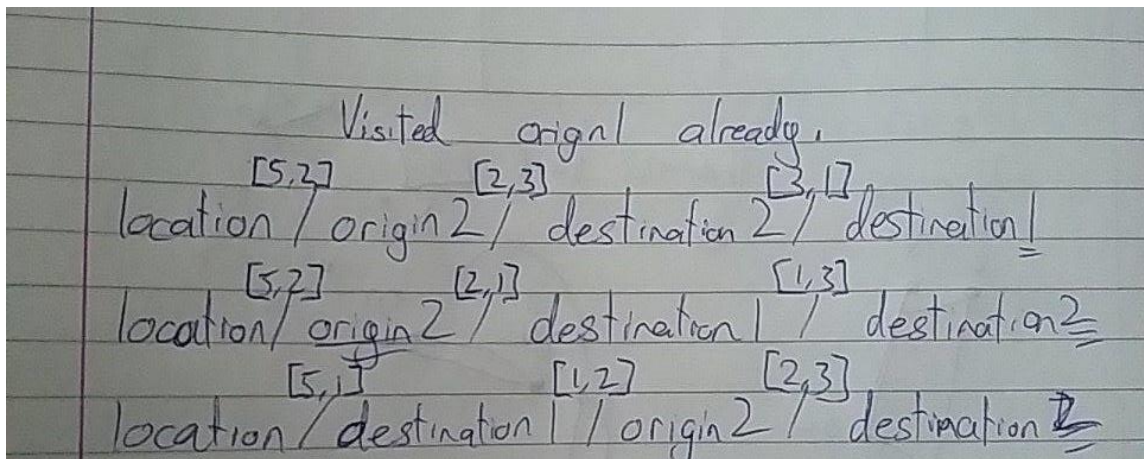 Visited orignl already.
[5,2] [2,3] [3,1]
location / origin2 / destination 2 / destination1
[5,2] [2,1] [1,3]
location / origin2 / destination 1 / destination2
[5,1] [1,2] [2,3]
location / destination 1 / origin2 / destination 2